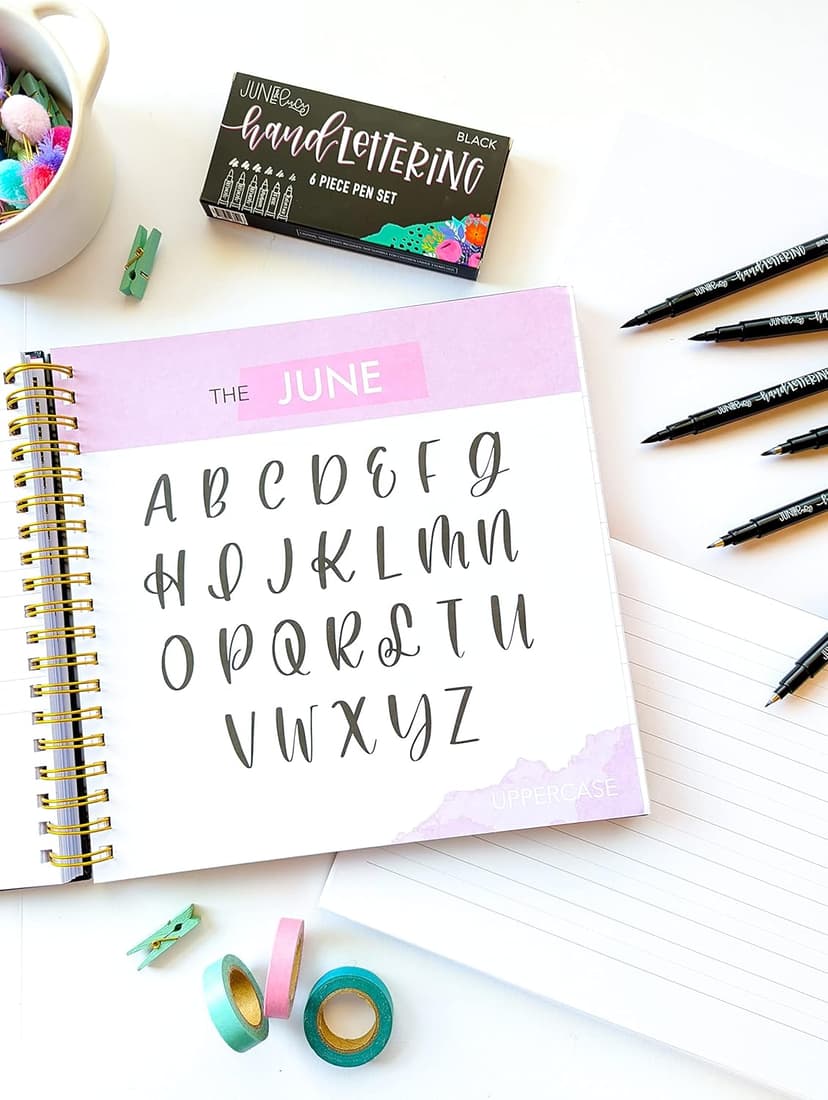 JUNE & lucy
hand LETTERING
BLACK
6 PIECE PEN SET
THE JUNE
A B C D E F G
H I J K L M N
O P Q R S T U
V W X Y Z
UPPERCASE
JUNE & lucy hand LETTERING
JUNE & lucy hand LETTERING
JUNE & lucy hand LETTERING